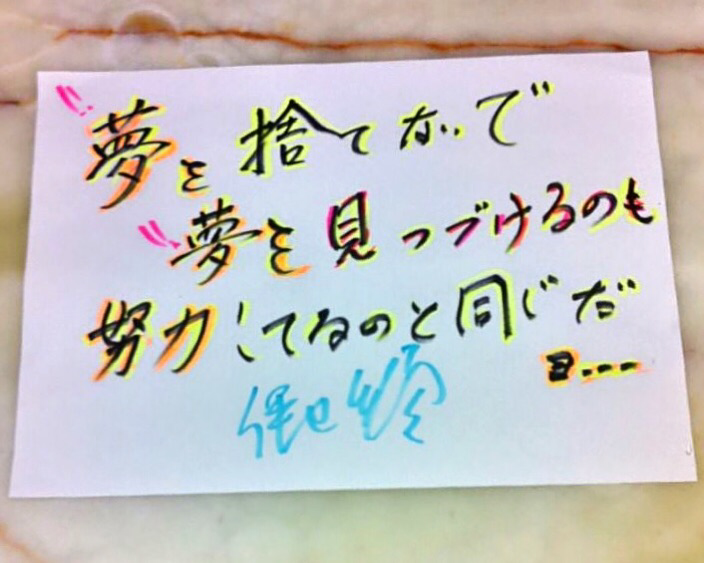 "夢を捨てないで
"夢を見つづけるのも
努力してるのと同じだ
ョ---